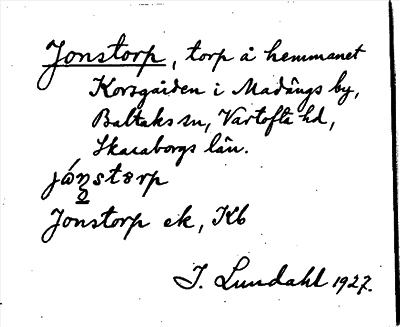 Jonstorp, torp å hemmanet
Korsgården i Madängs by,
Baltaks sn, Vartofta hd,
Skaraborgs län.
jón̥storp
Jonstorp ek, Kb
I. Lundahl 1927.